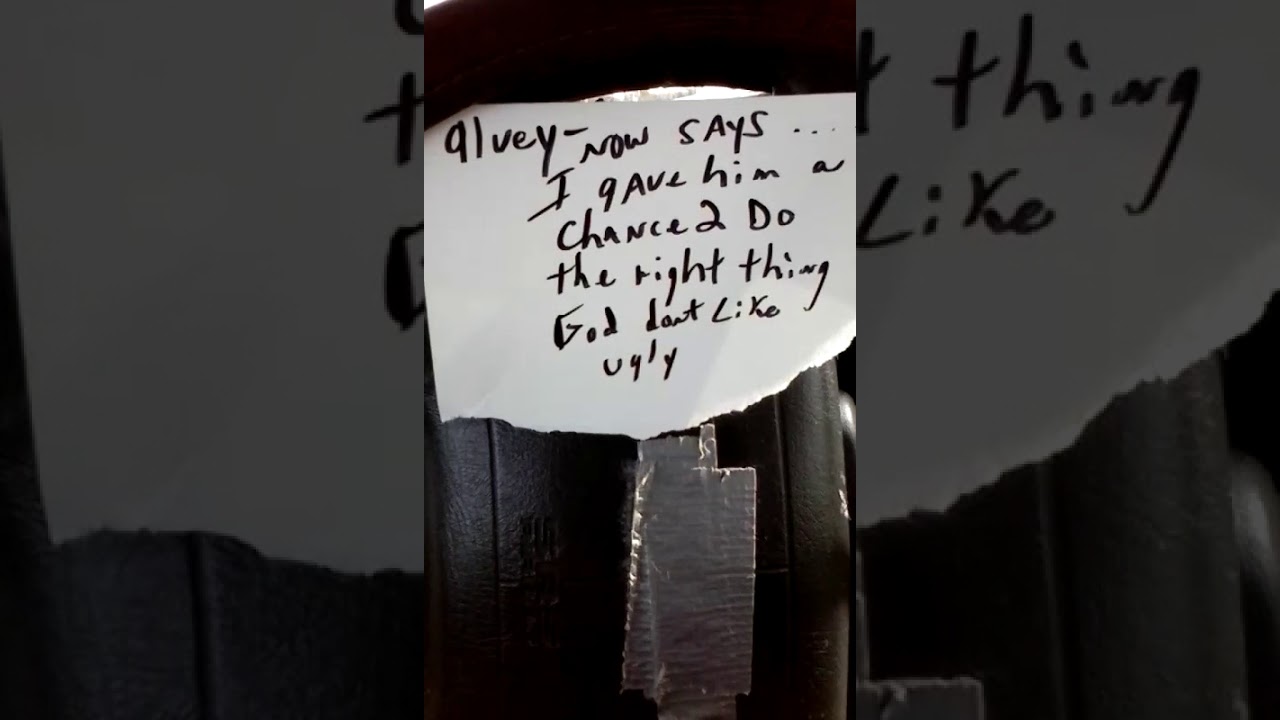 alvey- now SAYS ...
I gAve him a
ChANce 2 Do
the right thing
God dont Like
ugly